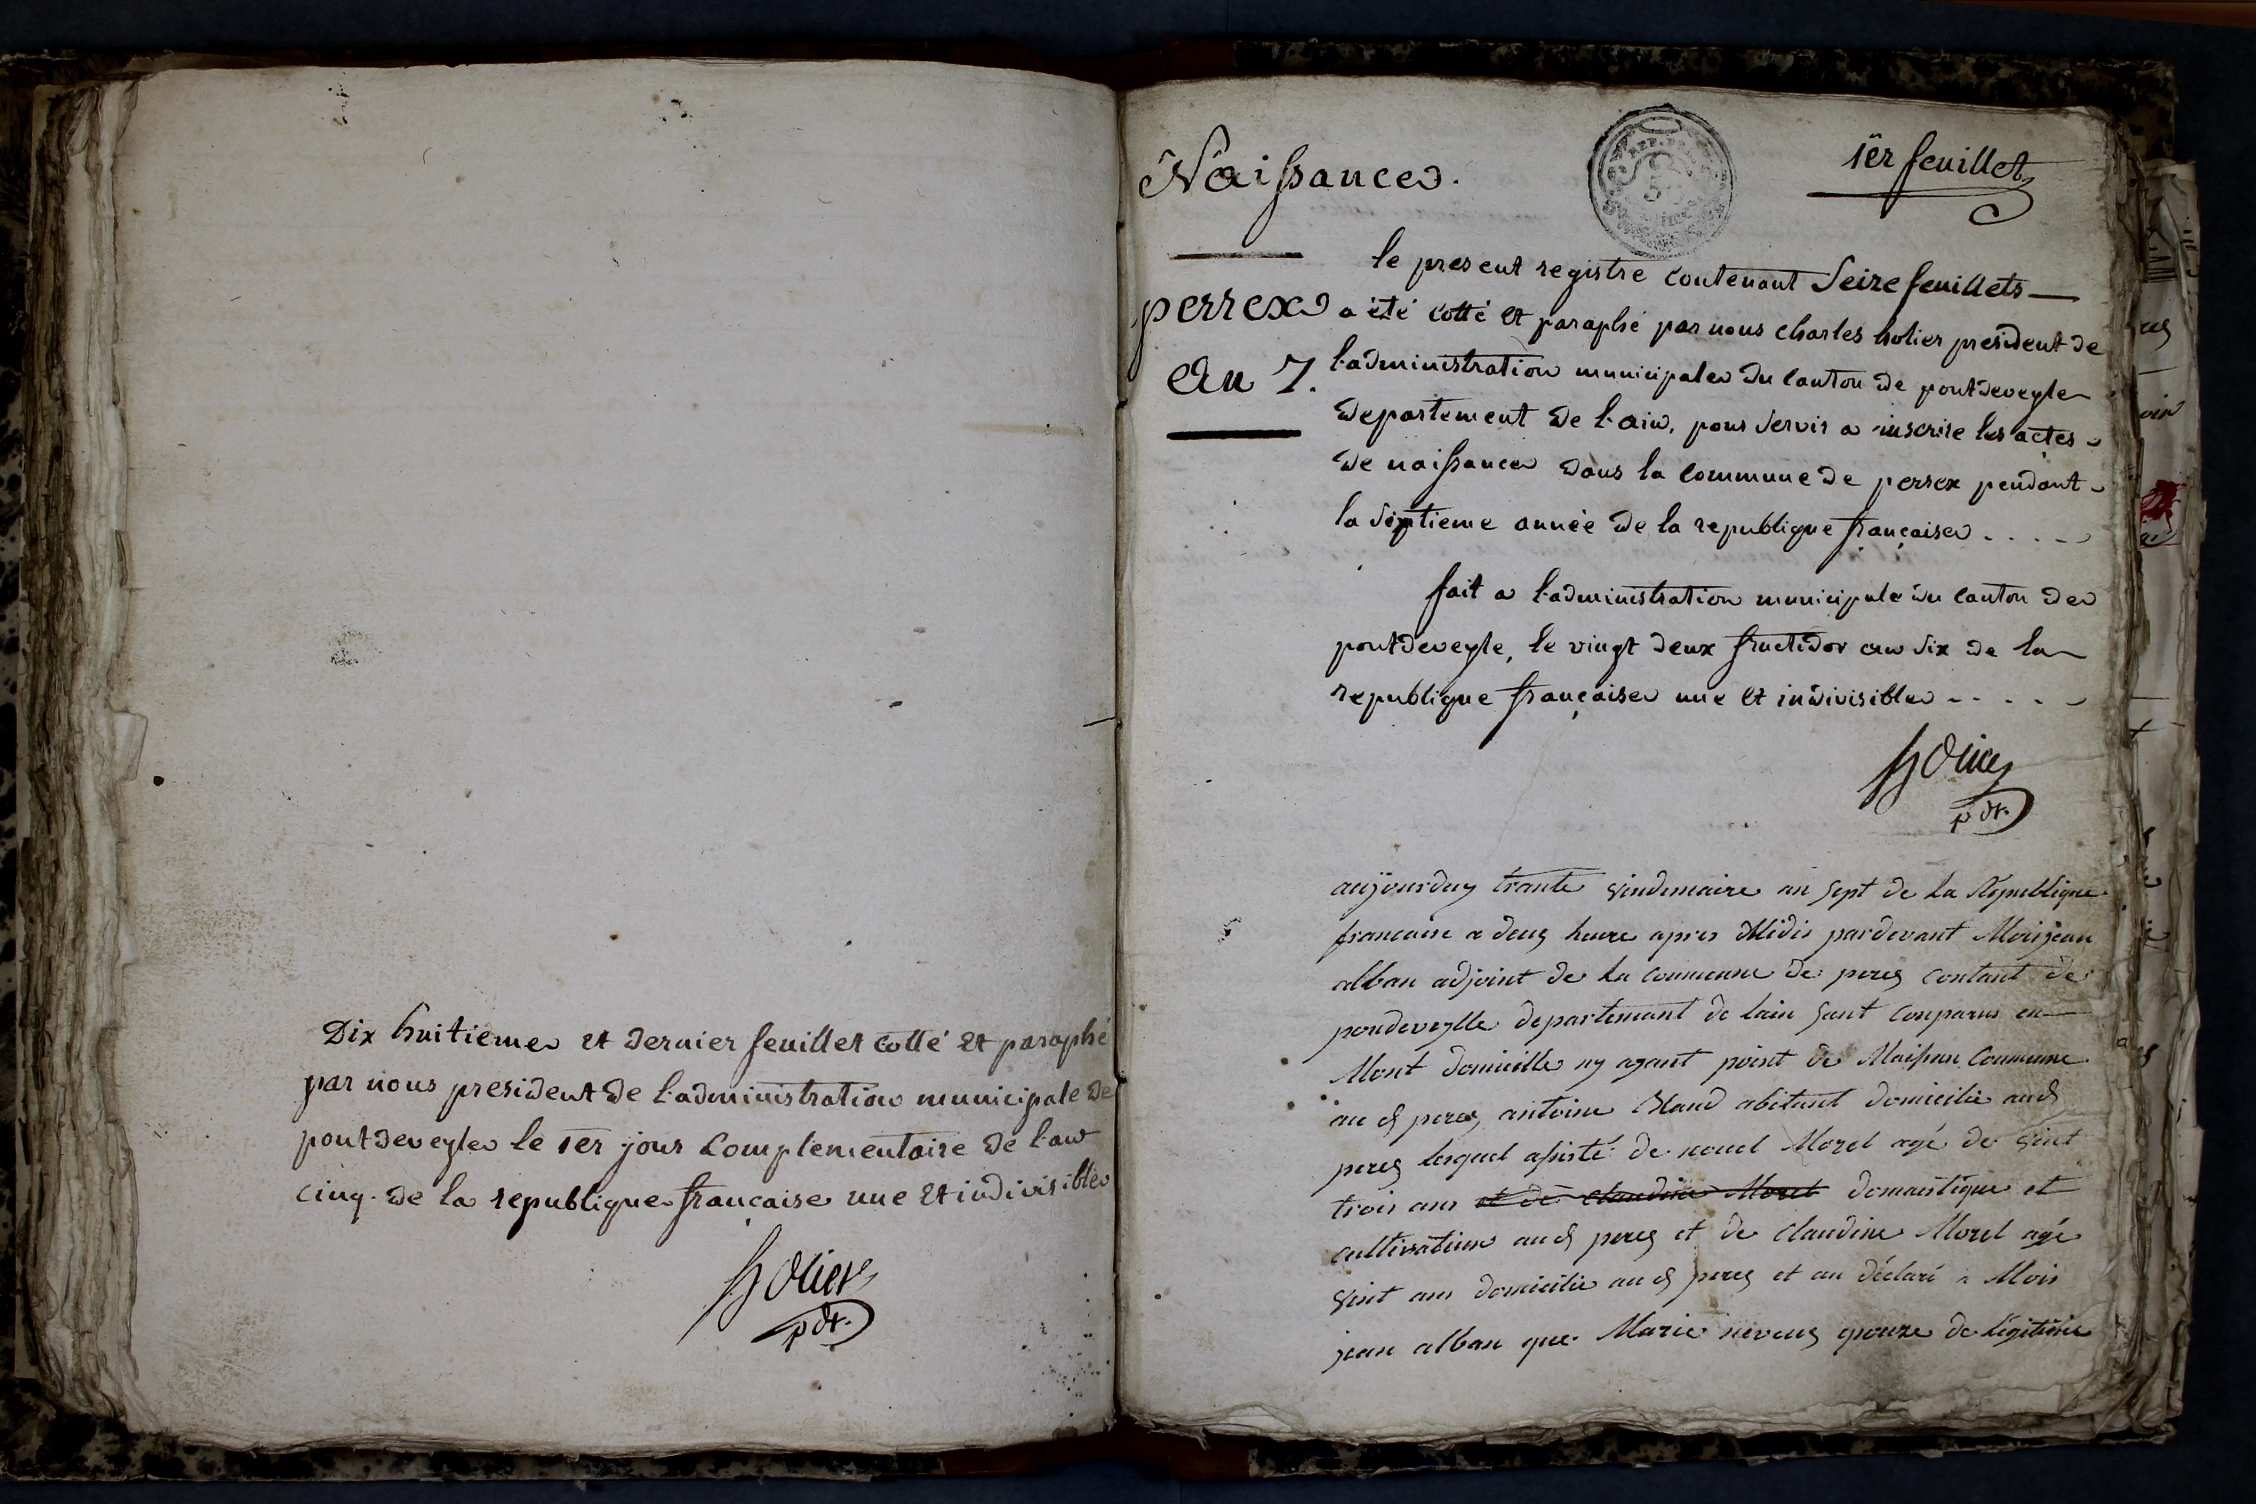 Dix huitieme et dernier feuillet cotté et paraphé
par nous president de l'administration municipale de
pontdeveyle le 1er jour complementaire de l'an
cinq. de la republique francaise une et indivisible
holier
pdt.
Naissances.
1er feuillet
perrex
An 7.
le present registre contenant Seize feuillets
a été cotté et paraphé par nous charles holier president de
l'administration municipale du canton de pontdeveyle
departement de l'ain, pour servir a inscrire les actes
de naissance dans la commune de perrex pendant
la septieme année de la republique française . . . .
fait a l'administration municipale du canton de
pontdeveyle, le vingt deux fructidor an six de la
republique française une et indivisible - - . . .
holier
pdt.
aujourduy trante vindemaire an sept de la Republique
francaise a deux heure apres Midis pardevant Moijean
alban adjoint de la commune de perex contant de
pondeveylle departemant de lain sont conparus en
Mont domicille ny ayant point de Maison Commune
au d perex antoine abitant domicilie aud
perex lesquel asisté de nouel Morel agé de vint
trois ans et de claudine Morel domaistique et
cultivateur aud perex et de claudine Morel agé
vint ans domicilie aud perex et au déclaré a Mois
jean alban que Marie neveux epouze de légitime